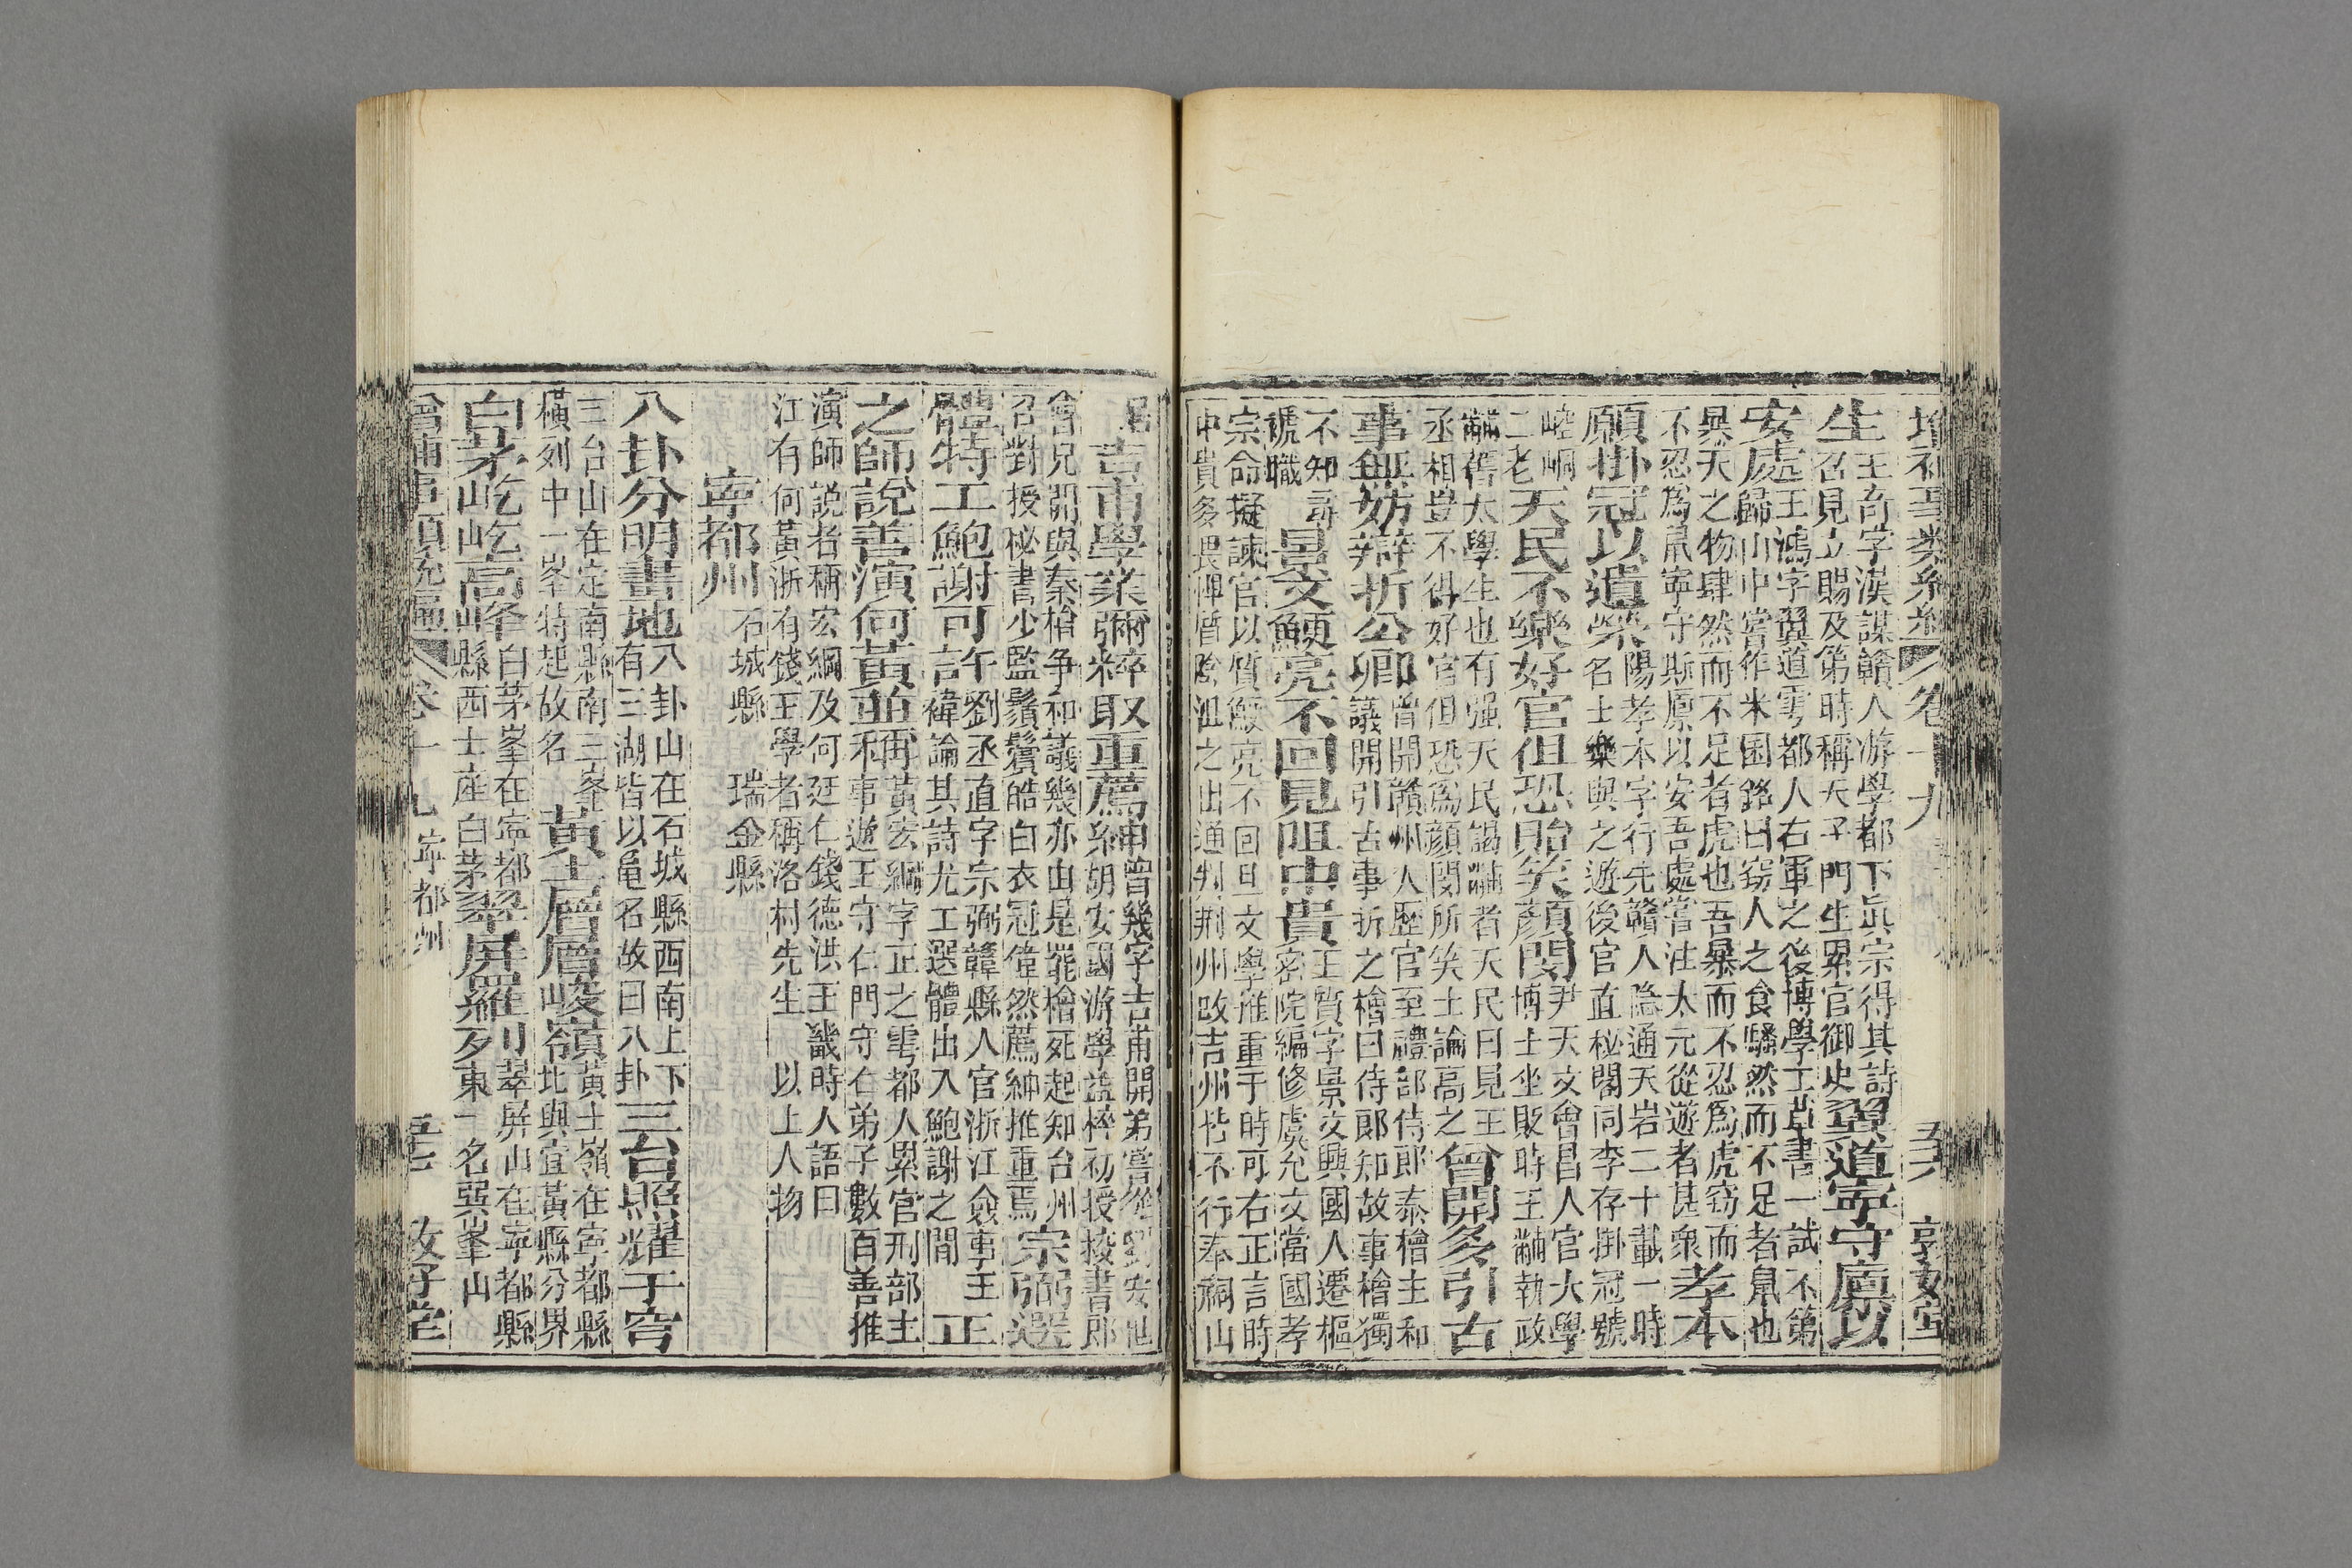 卷十九
生王奇字漢謀贛人游學都下真宗得其詩
召見立賜及第時稱天子門生累官御史翼道寧守廩以
安處王鴻字翼道雩都人右軍之後博學工草書一試不第
歸山中嘗作米囷銘曰窃人之食驕然而不足者鼠也
暴天之物肆然而不足者虎也吾暴而不忍為虎窃而
不忍為鼠寧守斯廩以安吾處嘗注太元從遊者甚衆孝本
願掛冠以遺榮陽孝本字行先贛人隐通天岩二十載一時
名士樂與之遊後官直秘閣同李存掛冠號
崆峒
二老天民不樂好官但恐貽笑顏閔尹天文會昌人官大學
博士坐貶時王黼執政
黼舊大學生也有强天民謁黼者天民曰見王
丞相豈不得好官但恐為顏閔所笑士論高之曾開多引古
事無妨辯折公卿曾開贛州人歷官至禮部侍郎秦檜主和
議開引古事折之檜曰侍郎知故事檜獨
不知尋
褫職景文鯁亮不回見阻中貴王質字景文興國人遷樞
密院編修虞允文當國孝
宗命擬諫官以質鯁亮不回且文學推重于時可右正言時
中貴多畏憚陰沮之出通判荊州改吉州皆不行奉祠山
居吉甫學業彌粹取重薦紳曾幾字吉甫開弟嘗從劉安世
胡安國游學益粹初授挍書郎
會兄開與秦檜争和議幾亦由是罷檜死起知台州
召對授秘書少監鬚鬢皓白衣冠偉然薦紳推重焉宗弼選
體特工鮑謝可許劉丞直字宗弼贛縣人官浙江僉事王
褘論其詩尤工選體出入鮑謝之間正
之師說善演何黃並稱黃宏綱字正之雩都人累官刑部主
事遊王守仁門守仁弟子數百善推
演師說者稱宏綱及何廷仁錢德洪王畿時人語曰
江有何黃浙有錢王學者稱洛村先生 以上人物
寧都州 石城縣 瑞金縣
八卦分明畫地八卦山在石城縣西南上下
有三湖皆以龜名故曰八卦三台照耀于穹
三台山在定南縣南三峯
橫列中一峯特起故名黃土層層峻嶺黃土嶺在寧都縣
北與宜黃縣分界
白茅屹屹高峰白茅峯在寧都
縣西土產白茅翠屏羅列翠屏山在寧都縣
東一名巽峯山
增補事類統編 卷十九 寧都州 敦好堂